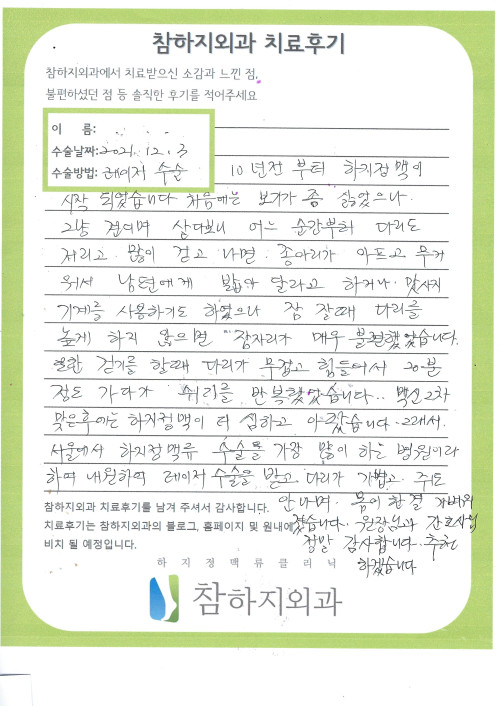 참하지외과 치료후기
참하지외과에서 치료받으신 소감과 느낀 점,
불편하셨던 점 등 솔직한 후기를 적어주세요
이 름:
수술날짜:2021. 12. 3
수술방법: 레이저 수술
10년전 부터 하지정맥이
시작 되었습니다 처음에는 보기가 좀 싫었으나.
그냥 견이며 살다보니 어느 순간부터 다리도
저리고. 많이 걷고 나면. 종아리가 아프고 무거
워서 남편에게 밟아 달라고 하거나. 맛사지
기계를 사용하기도 하였으나 잠 잘때 다리를
높게 하지 않으면 잠자리가 매우 불편했었습니다.
또한 걷기를 할때 다리가 무겁고 힘들어서 20분
정도 가다가 쉬기를 반복했었습니다.. 백신 2차
맞은후에는 하지정맥이 더 심하고 아팠습니다. 그래서.
서울에서 하지정맥류 수술을 가장 많이 하는 병원이라
하여 내원하여 레이저 수술을 받고 다리가 가볍고 쥐도
안나며. 몸이 한결 가벼워
졌습니다. 원장님과 간호사님
정말 감사합니다.. 추천
하겠습니다
참하지외과 치료후기를 남겨 주셔서 감사합니다.
치료후기는 참하지외과의 블로그, 홈페이지 및 원내에
비치 될 예정입니다.
하지정맥류클리닉
참하지외과